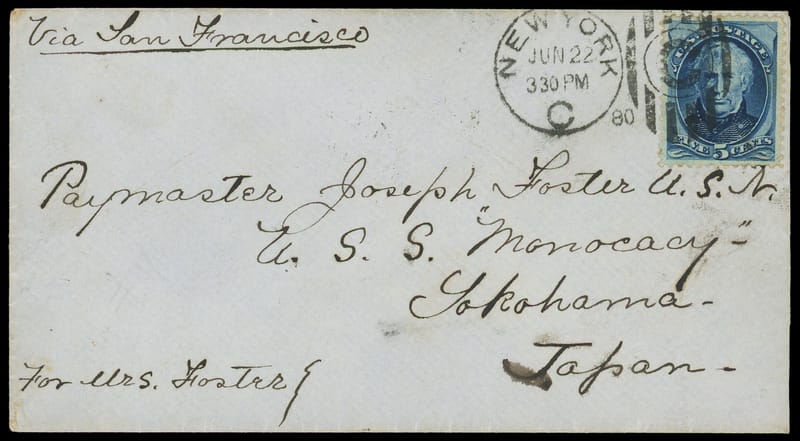 Via San Francisco
NEW YORK
JUN 22
330 PM
C
80
U.S. POSTAGE
FIVE 5 CENTS
Paymaster Joseph Foster U.S.N.
U. S. S. "Monocacy"-
Yokohama-
Japan-
For Mrs. Foster}